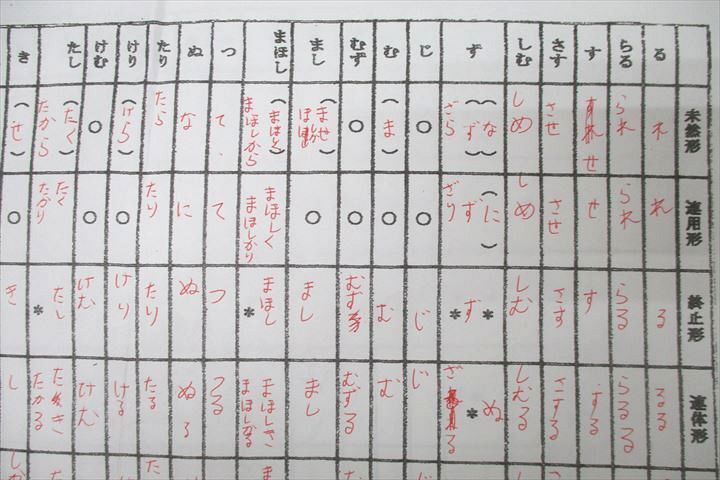 る らる す さす しむ ず じ む むず まし まほし つ ぬ たり けり けむ たし き
未然形 れ られ せ させ しめ (な) (ず) ざら ○ (ま) ○ (ませ) ましか (まほしく) まほしから て な たら (けら) ○ (たく) たから (せ)
連用形 れ られ せ させ しめ (に) ず ざり ○ ○ ○ ○ まほしく まほしかり て に たり ○ ○ たく たかり ○
終止形 る らる す さす しむ * ず * じ む むず まし まほし * つ ぬ たり けり けむ たし * き
連体形 るる らるる する さする しむる ぬ * ざる じ む むずる まし まほしき まほしかる つる ぬる たる ける けむ たき たかる し